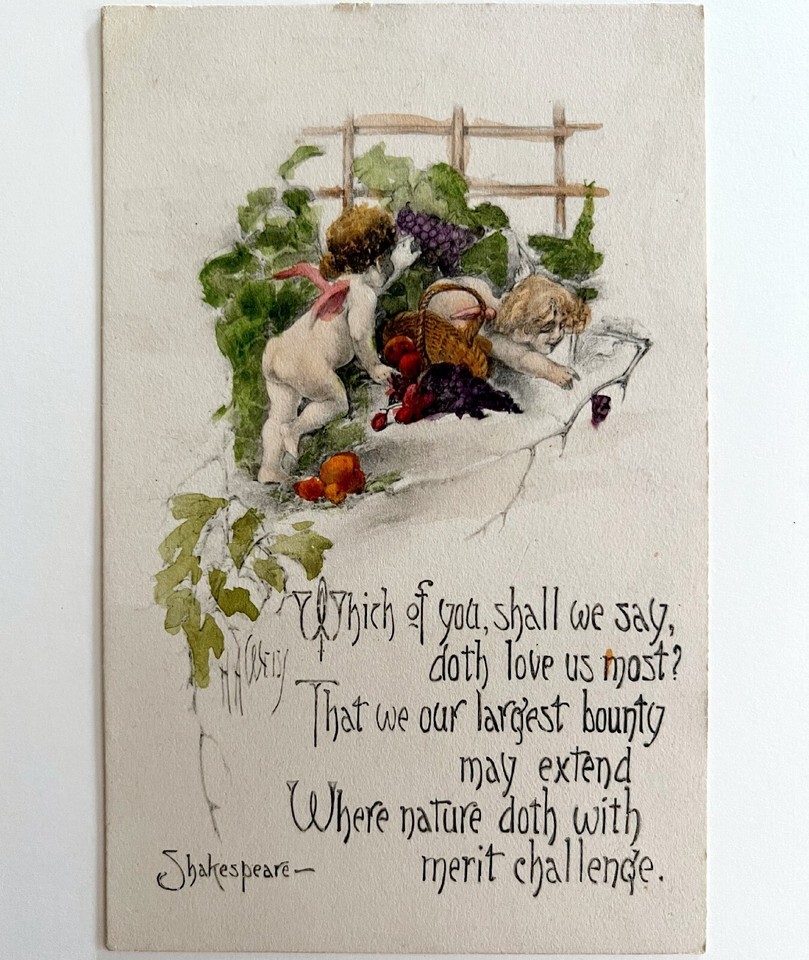 Which of you, shall we say,
doth love us most?
That we our largest bounty
may extend
Where nature doth with
merit challenge.
Shakespeare—